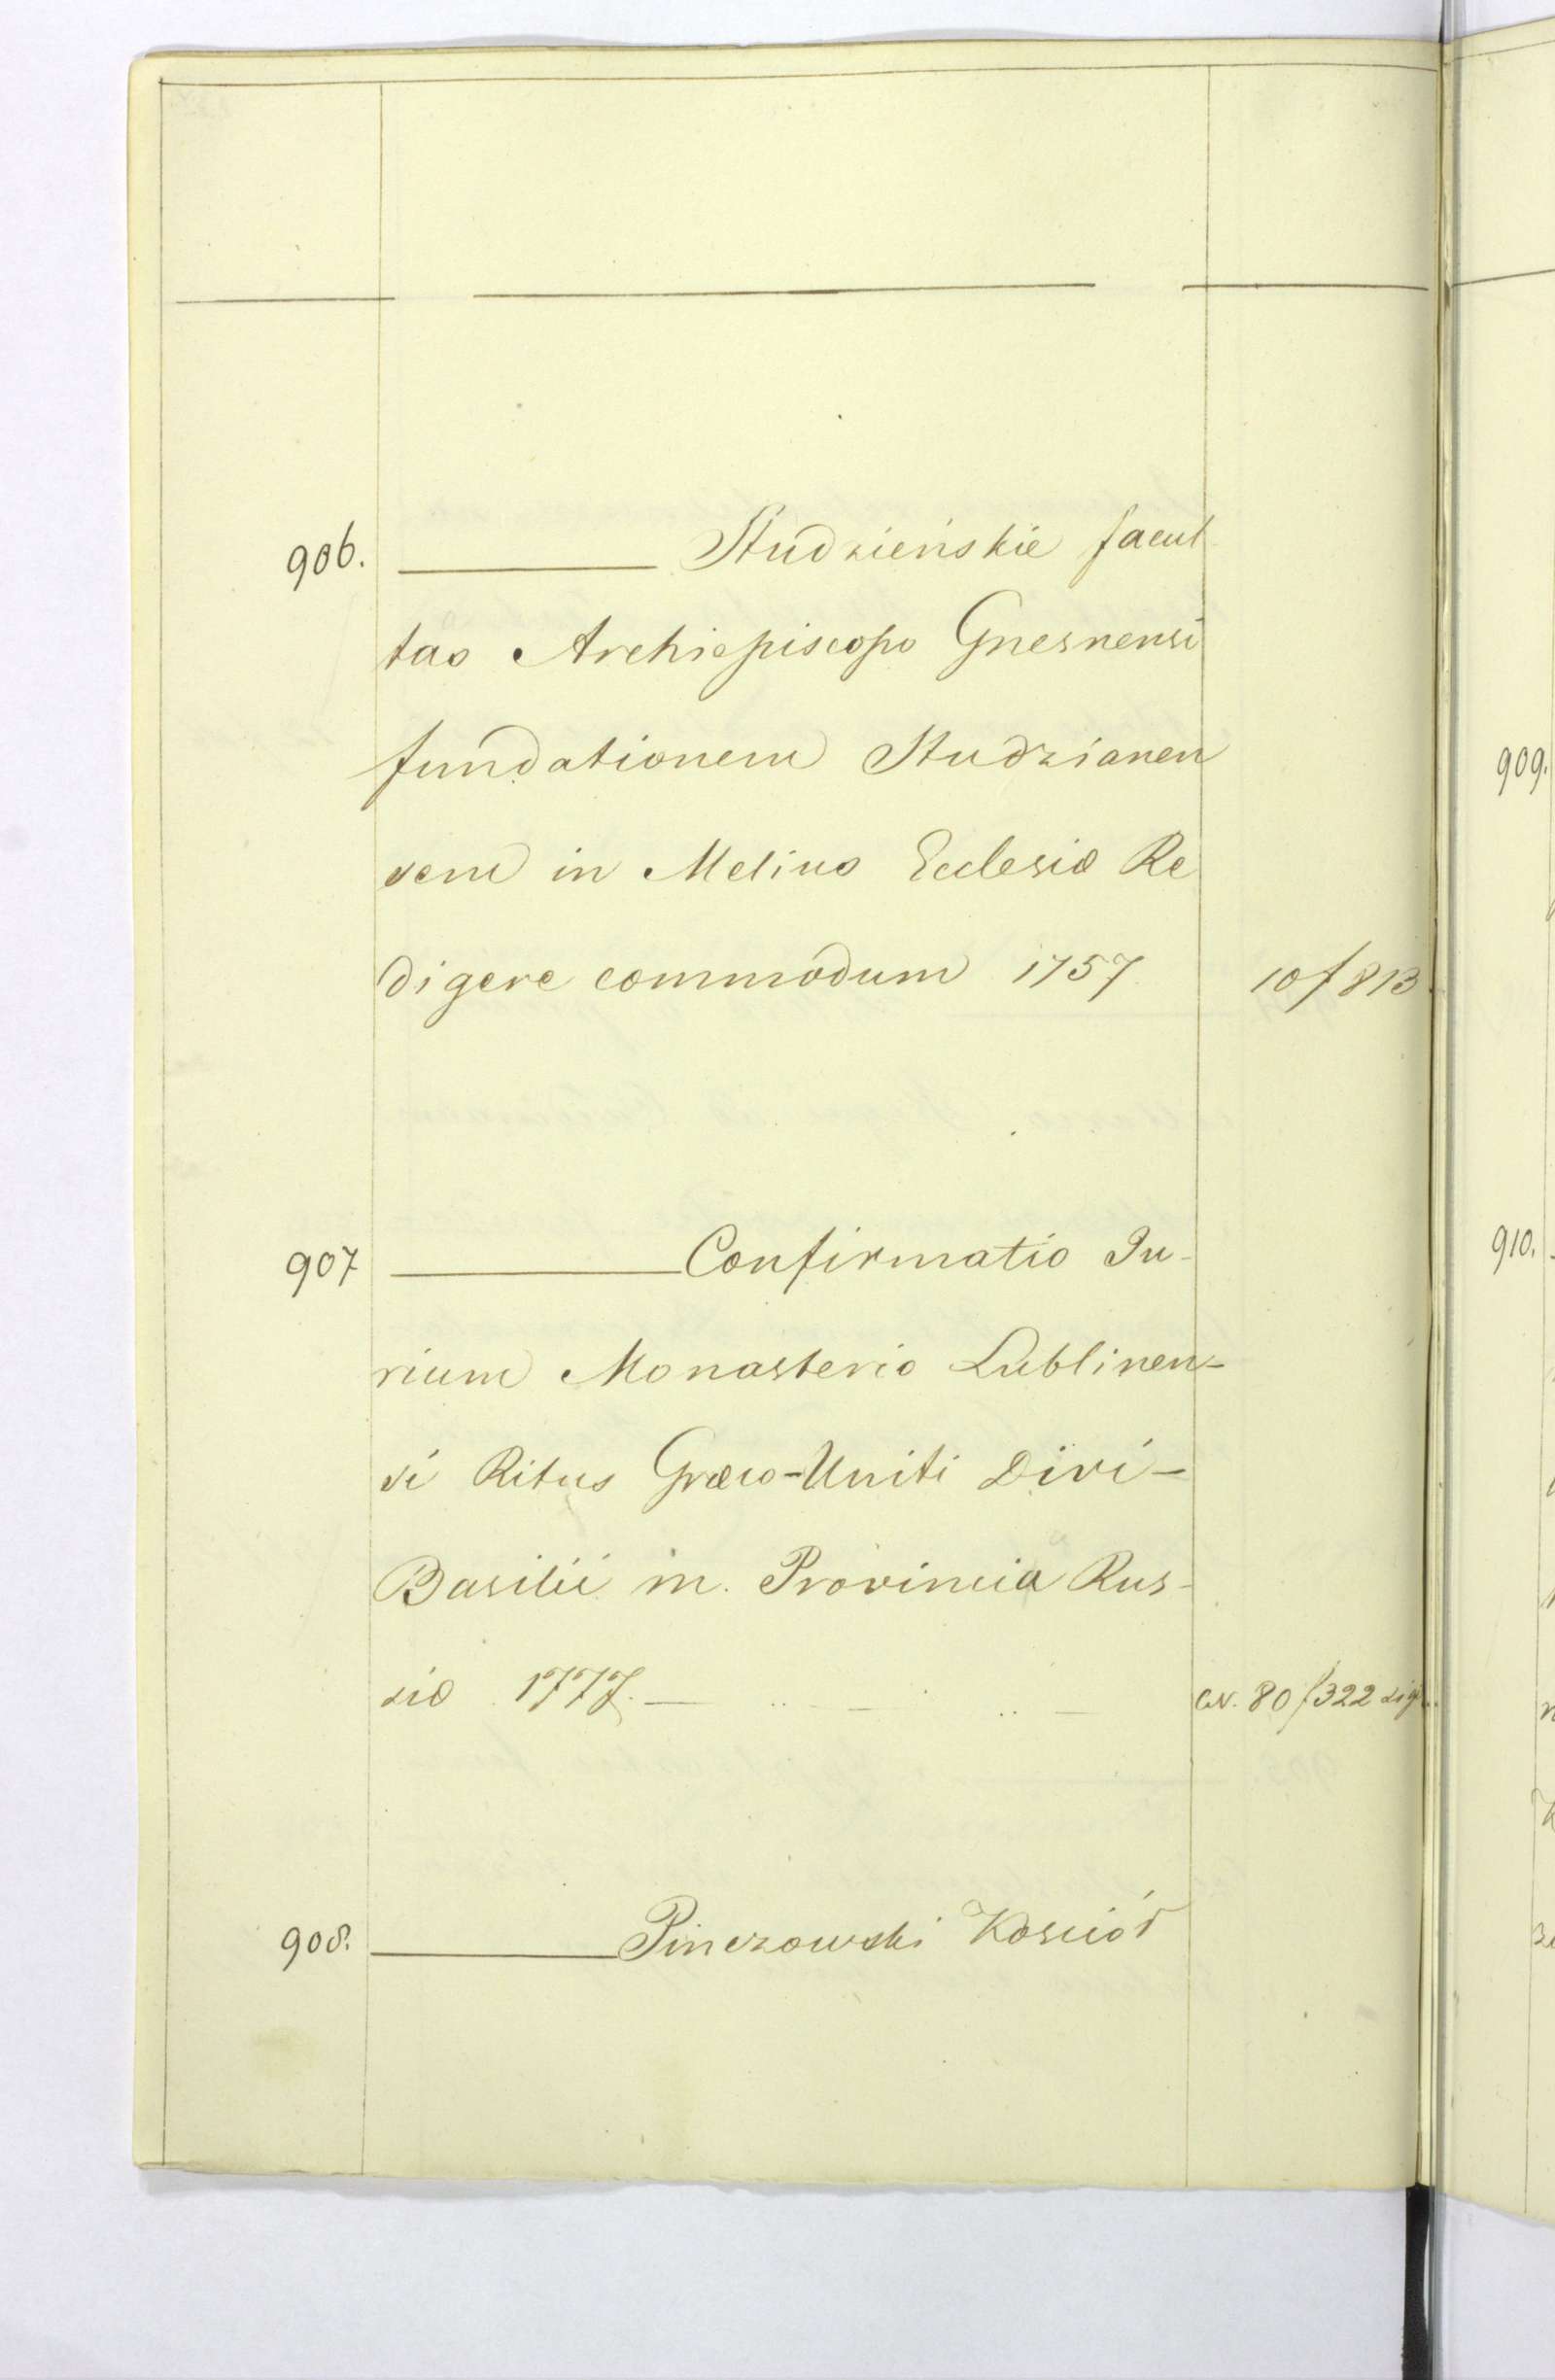 906. Studzieńskie facul
tas Archiepiscopo Gnesnensi
fundationem Studzianen
sem in Melius Eclesiæ Re
digere commodum 1757 10f 813
907 Confirmatio Ju-
rium Monasterio Lublinen-
si Ritus Græco-Uniti Divi-
Basilii in. Provincia Rus-
siæ 1777. 80 f 322 sig.
908. Pinczowski Kosciół
909.
910.